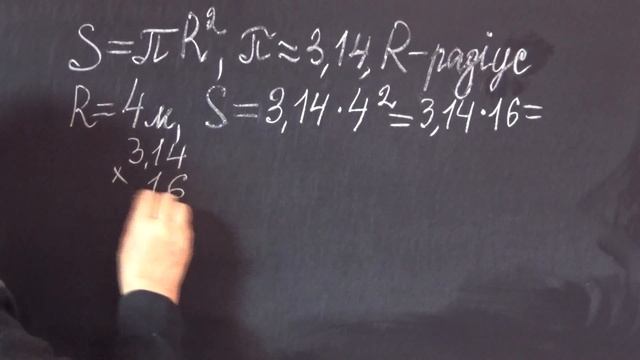 S=πR², π≈3,14, R-радіус
R=4м, S=3,14·4²=3,14·16=
3,14
× 16